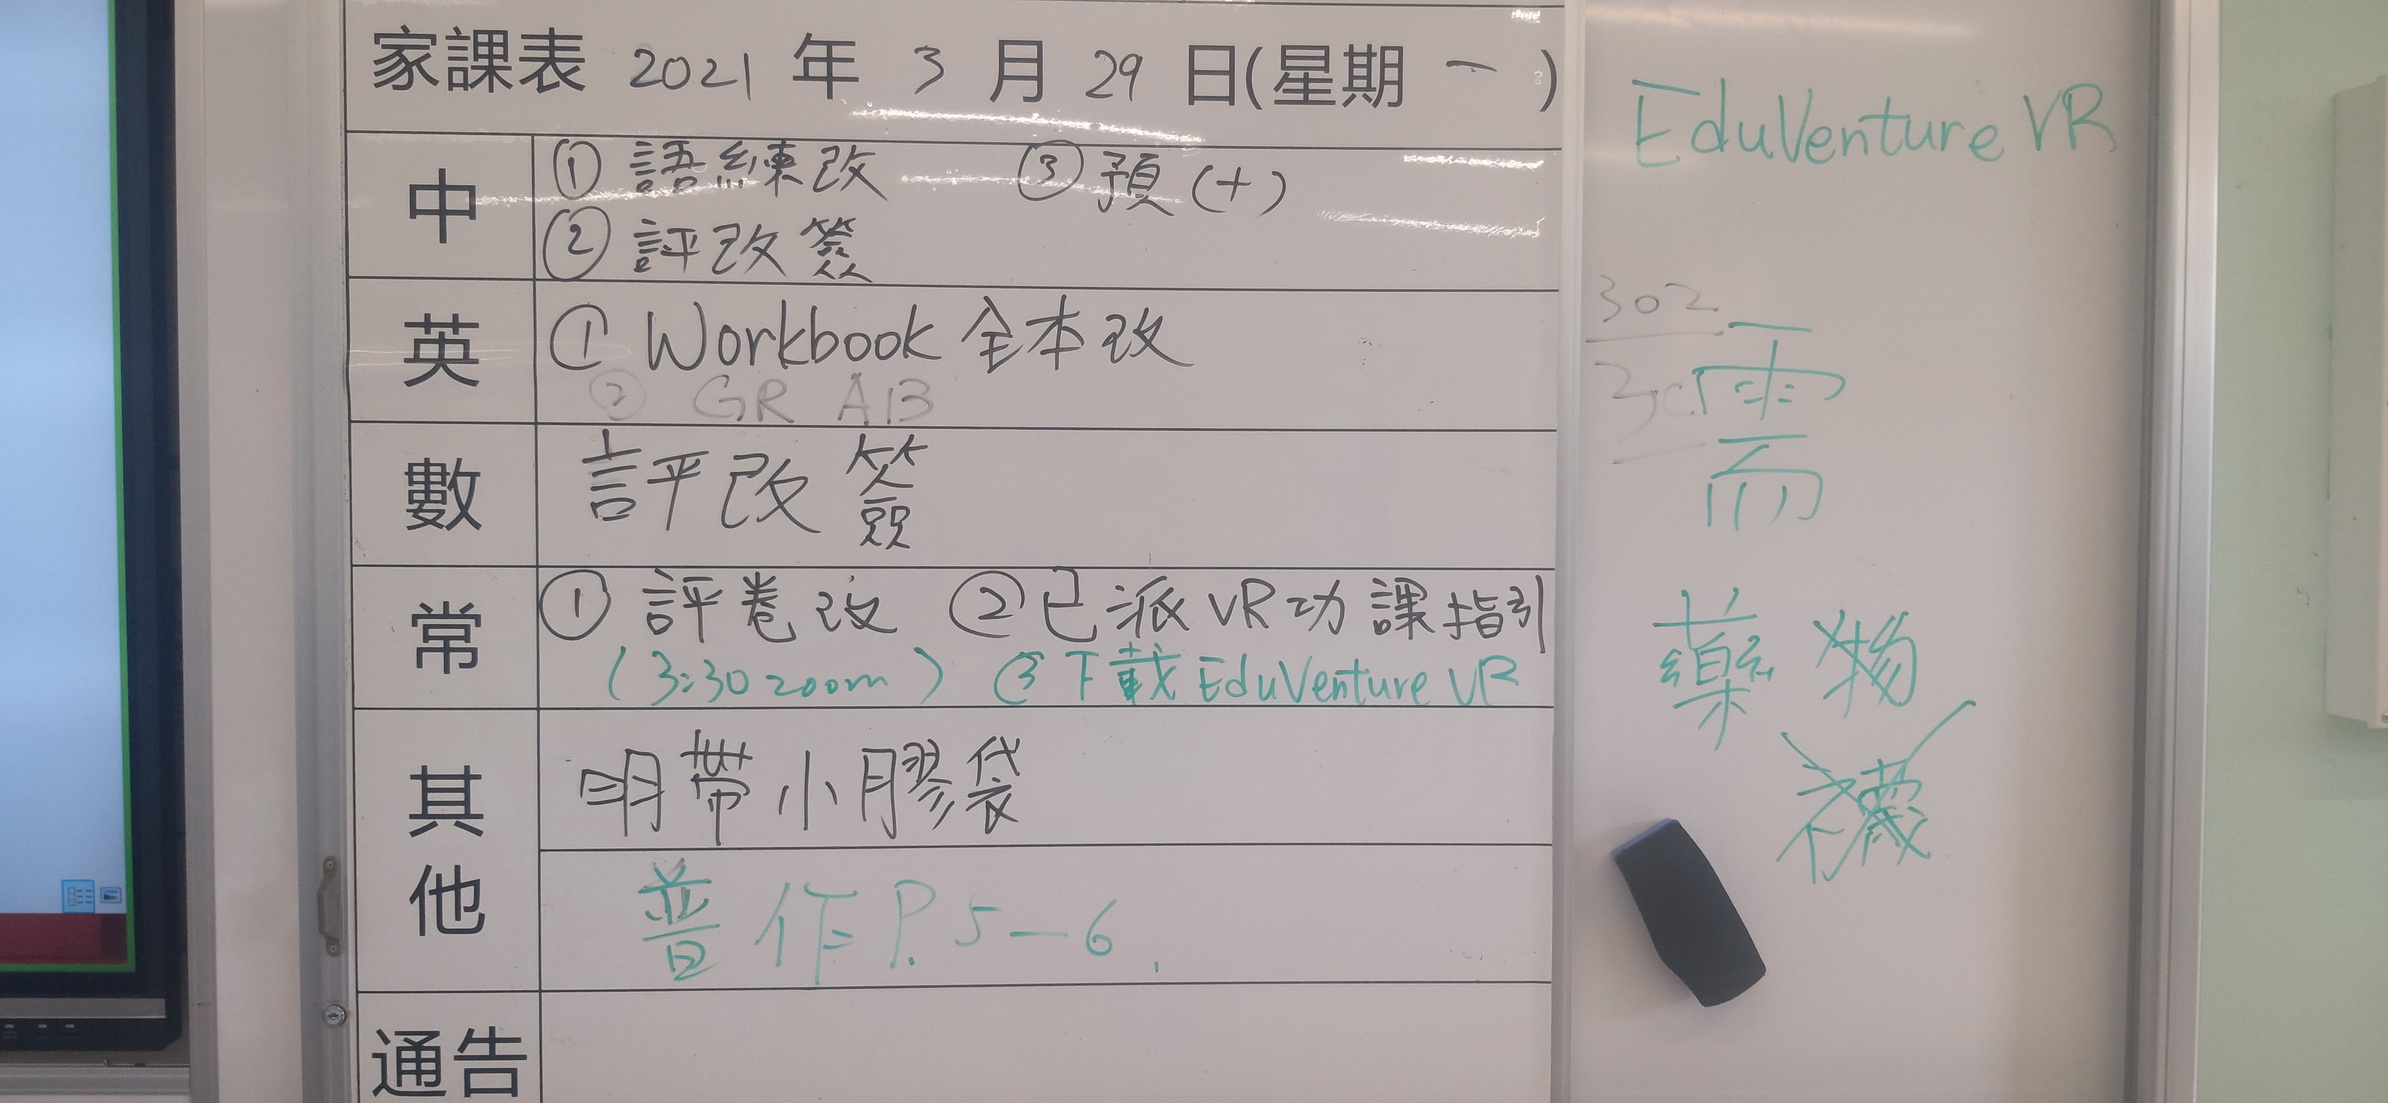 家課表 2021 年 3 月 29 日(星期 一 )
中
① 語練改 ③ 預(十)
② 評改簽
英
① Workbook 全本改
② GR A13
數
評改簽
常
① 評卷改 ② 已派VR功課指引
(3:30 zoom) ③ 下載 EduVenture VR
其他
明帶小膠袋
普作 P.5-6.
通告
EduVenture VR
302
需
藥物